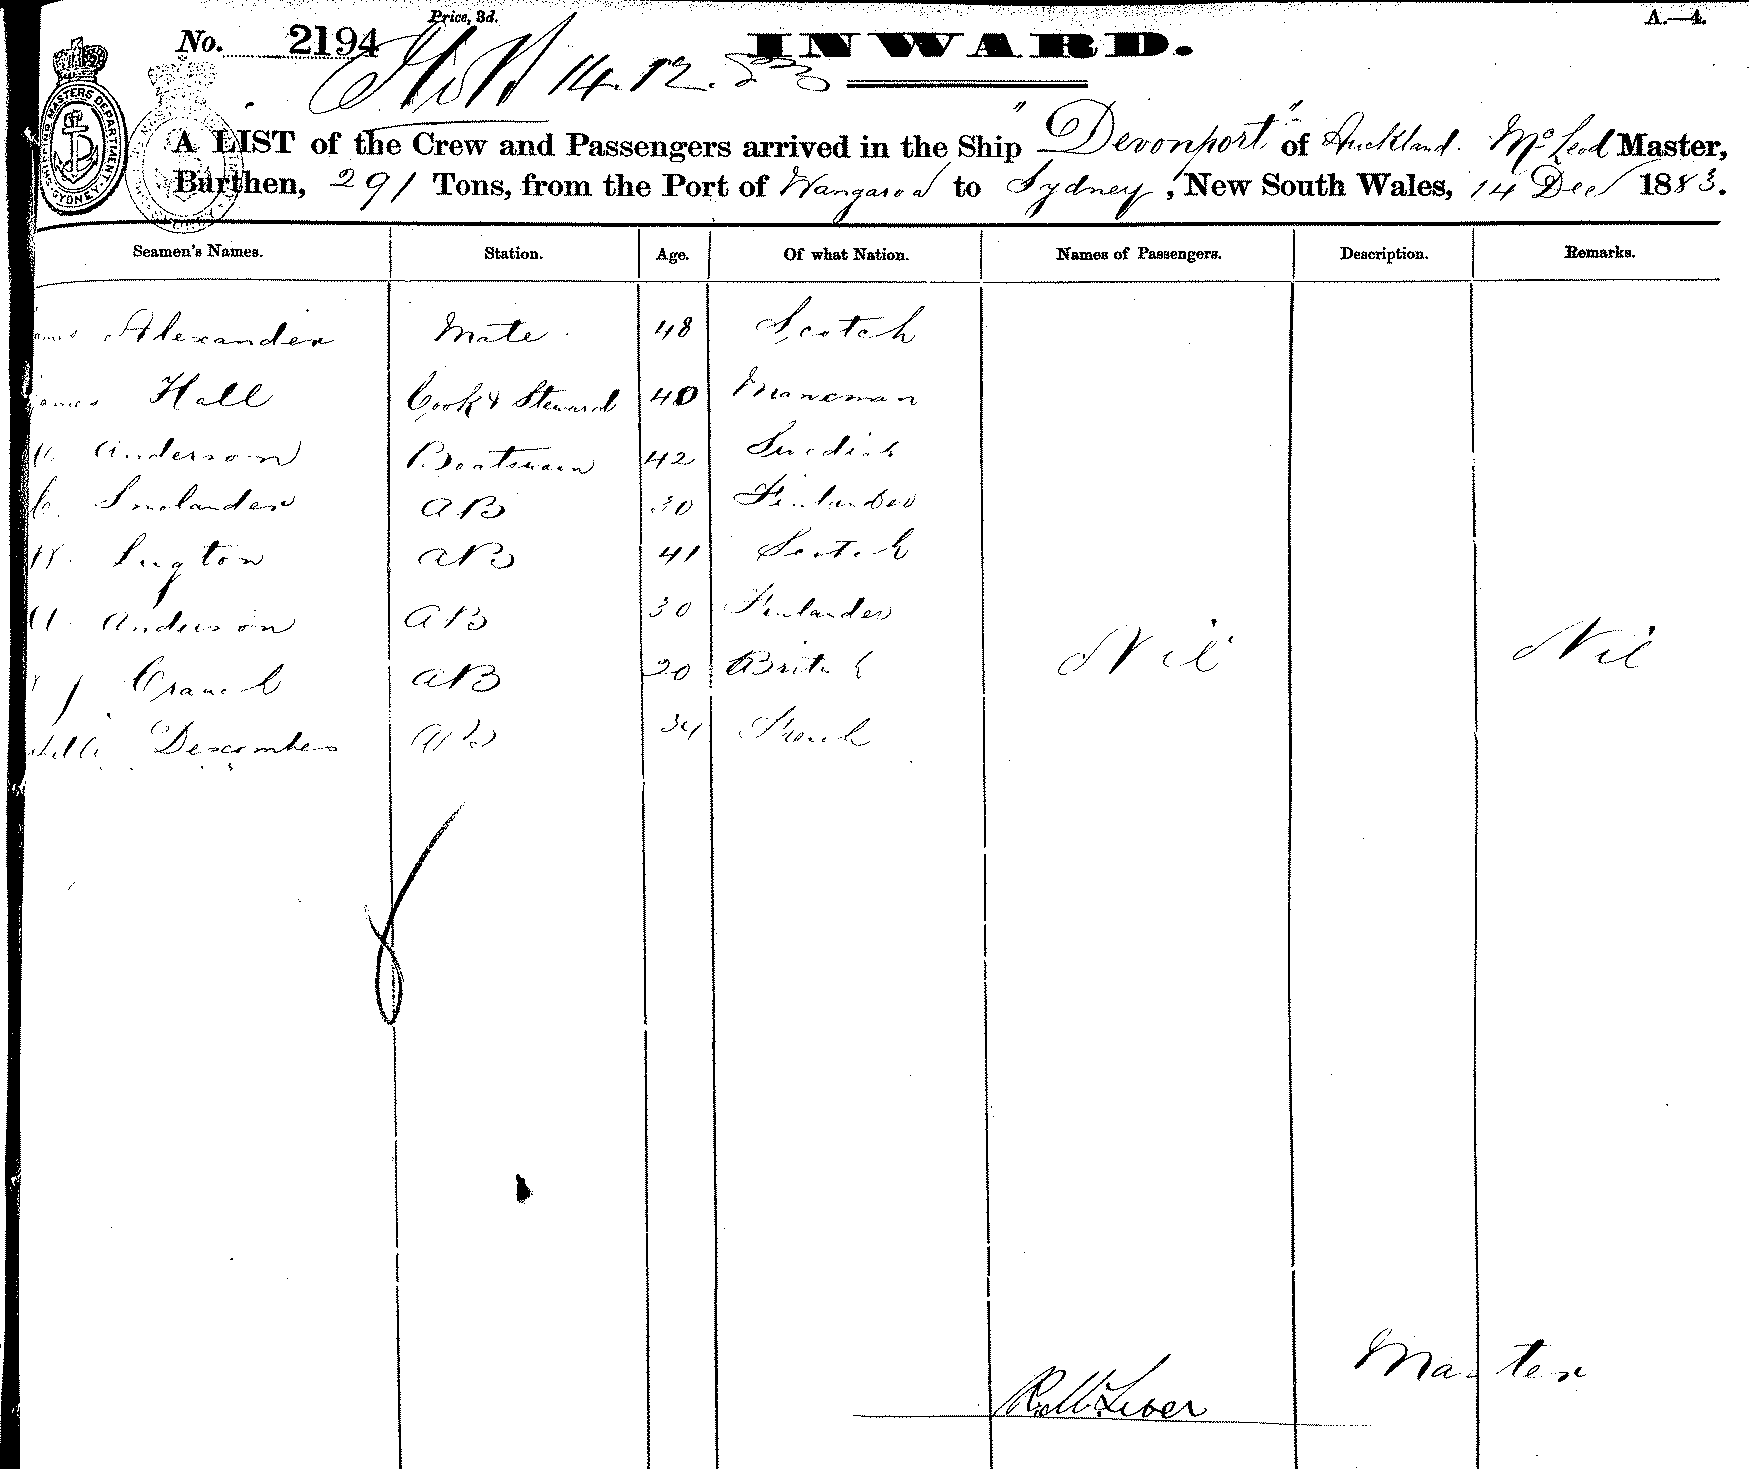 Price, 3d.
A.—4.
No. 2194
INWARD.
14.12.83
A LIST of the Crew and Passengers arrived in the Ship "Devonport" of Auckland. McLeod Master,
Burthen, 291 Tons, from the Port of Wangaroa to Sydney, New South Wales, 14 Dec 1883.
Seamen's Names. Station. Age. Of what Nation. Names of Passengers. Description. Remarks.
Alexander Mate 48 Scotch
James Hall Cook & Steward 40 Manxman
Anderson Boatswain 42 Swedish
C. Smelander AB 30 Finlander
Lugton AB 41 Scotch
A. Anderson AB 30 Finlander
AB 20 British Nil Nil
Descombes AB 34 French
Master